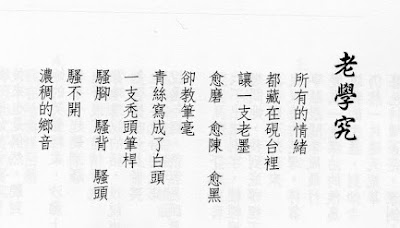 老學究
所有的情緒
都藏在硯台裡
讓一支老墨
愈磨　愈陳　愈黑
卻教筆毫
青絲寫成了白頭
一支禿頭筆桿
騷腳　騷背　騷頭
騷不開
濃稠的鄉音